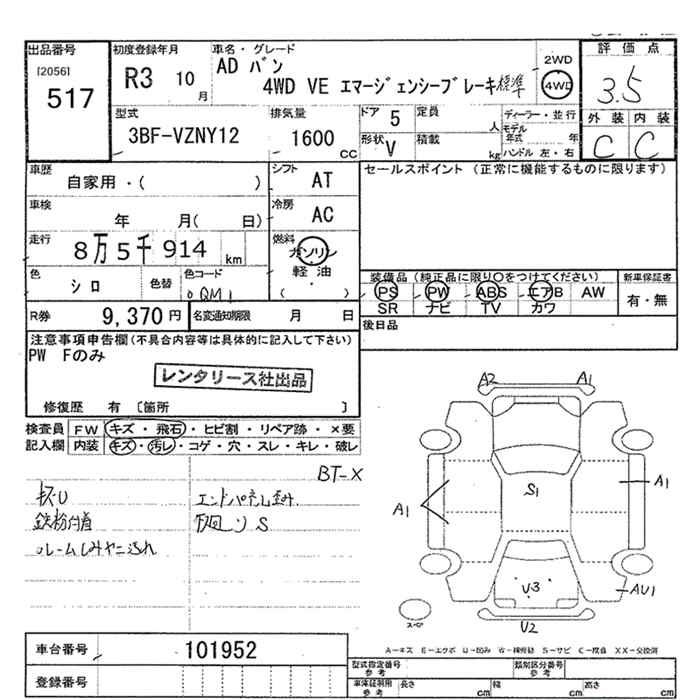 出品番号
[2056]
517
初度登録年月
R3 10月
車名・グレード
AD バン
4WD VE エマージェンシーブレーキ標準
2WD
4WD
評価点
3.5
外装 内装
C C
型式
3BF-VZNY12
排気量
1600 CC
ドア 5
定員 人
形状 V
積載 kg
ディーラー・並行
モデル年式 年
ハンドル 左・右
車歴
自家用・( )
シフト AT
車検
年 月( 日)
冷房 AC
走行
8万5千914 km
燃料
ガソリン
軽油
( ・ )
色
シロ
色替
色コード
QM1
R券 9,370円
名変通知期限 月 日
セールスポイント (正常に機能するものに限ります)
装備品 (純正品に限り○をつけてください)
PS PW ABS エアB AW
SR ナビ TV カワ
新車保証書
有・無
後日品
注意事項申告欄(不具合内容等は具体的に記入して下さい)
PW Fのみ
レンタリース社出品
修復歴 有 [箇所 ]
検査員記入欄
FW キズ・飛石・ヒビ割・リペア跡・×要
内装 キズ・汚レ・コゲ・穴・スレ・キレ・破レ
BT-X
キズU
エンドパネル歪み
鉄粉付着
下回りS
ルームしみヤニ汚れ
A2 A1
A1
S1
A1
U3
AU1
U2
スペア
A-キズ E-エクボ U-凹み W-補修跡 S-サビ C-腐食 XX-交換済
車台番号 101952
登録番号
型式指定番号 参考
類別区分番号 参考
車体証明用 参考 長さ cm 幅 cm 高さ cm